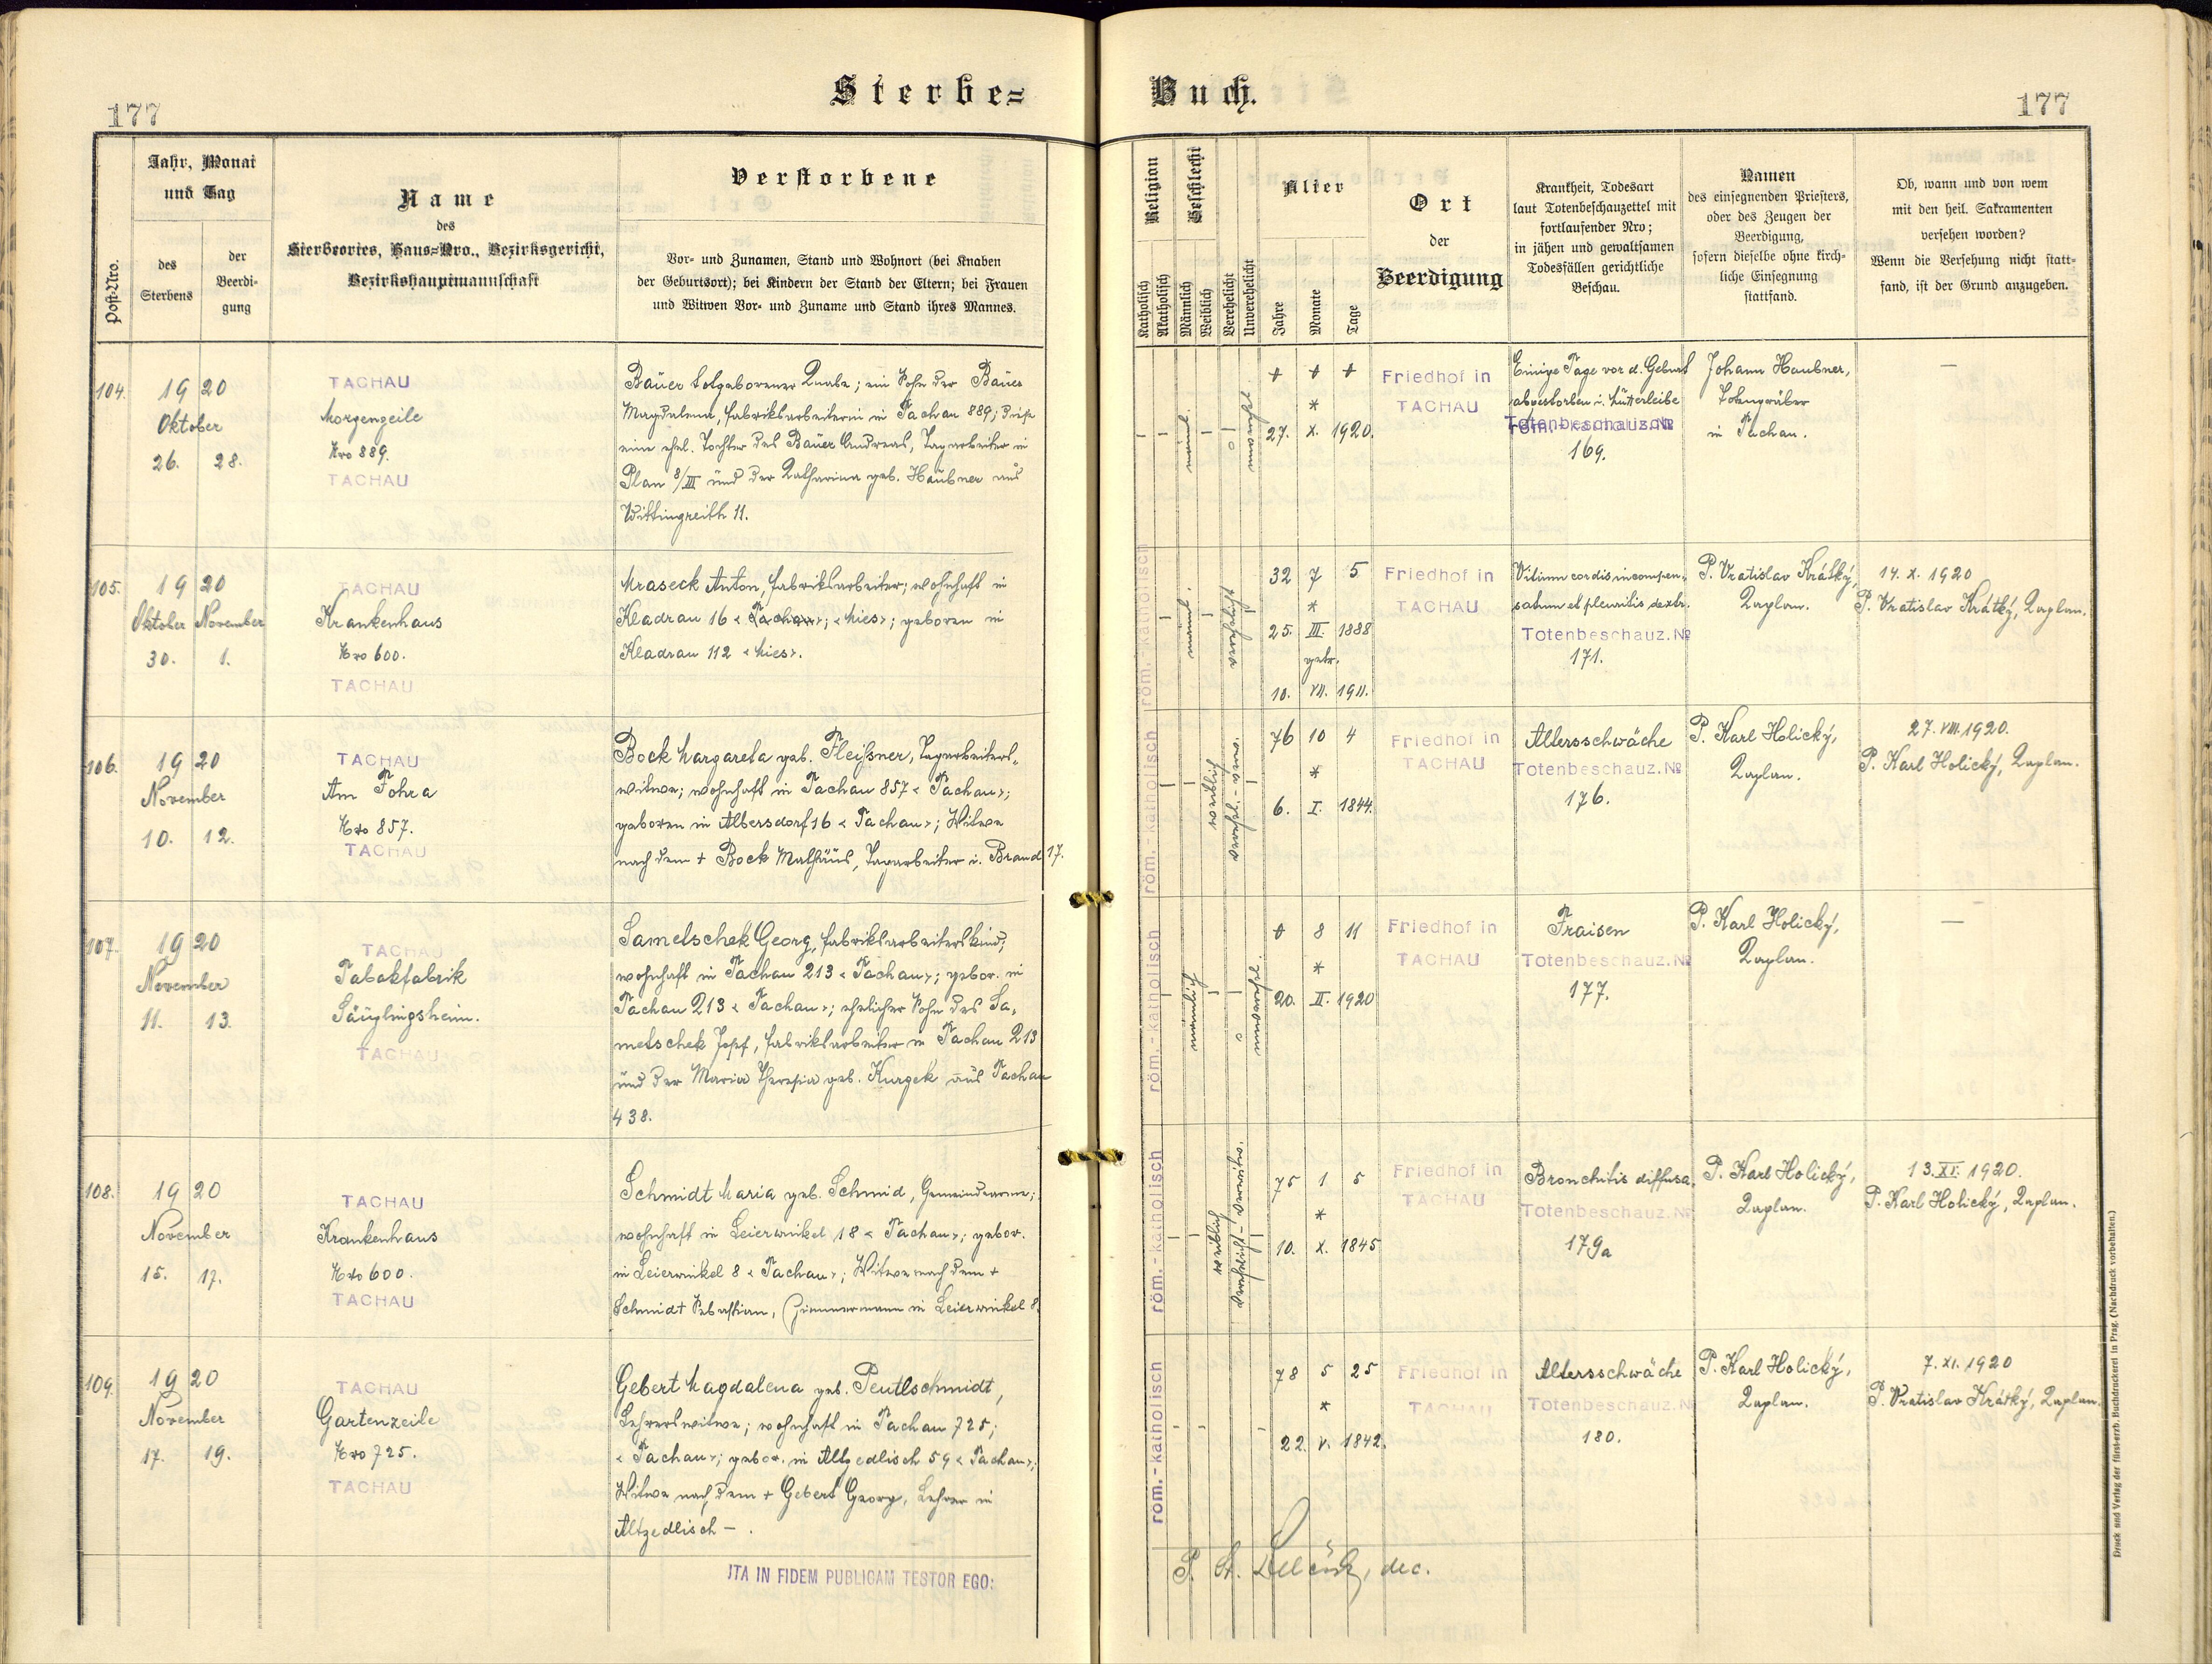 Sterbe= Buch.
177
177
Post-Nro.
Jahr, Monat
und Tag
des
Sterbens
der
Beerdi-
gung
Name
des
Sterbeortes, Haus-Nro., Bezirksgericht,
Bezirkshauptmannschaft
Verstorbene
Vor- und Zunamen, Stand und Wohnort (bei Knaben
der Geburtsort); bei Kindern der Stand der Eltern; bei Frauen
und Witwen Vor- und Zuname und Stand ihres Mannes.
Religion
Katholisch
Akatholisch
Geschlecht
Männlich
Weiblich
Verehelicht
Unverehelicht
Alter
Jahre
Monate
Tage
Ort
der
Beerdigung
Krankheit, Todesart
laut Totenbeschauzettel mit
fortlaufender Nro;
in jähen und gewaltsamen
Todesfällen gerichtliche
Beschau.
Namen
des einsegnenden Priesters,
oder des Zeugen der
Beerdigung,
sofern dieselbe ohne kirch-
liche Einsegnung
stattfand.
Ob, wann und von wem
mit den heil. Sakramenten
versehen worden?
Wenn die Versehung nicht statt-
fand, ist der Grund anzugeben.
104.
1920
Oktober
26. 28.
TACHAU
Morgenzeile
Nro 889.
TACHAU
Bauer totgeborener Knabe; ein Sohn der Bauer
Magdalena, Fabriksarbeiterin in Tachau 889; diese
eine ehel. Tochter des Bauer Andreas, Tagarbeiter in
Plan 8/III und der Katharina geb. Haubner aus
Wittingreith 11.
männl.
+ + +
*
27. X. 1920.
Friedhof in
TACHAU
Einige Tage vor d. Geburt
abgestorben i. Mutterleibe
Totenbeschauz.No
169.
Johann Haubner,
Totengräber
in Tachau.
—
105.
1920
Oktober November
30. 1.
TACHAU
Krankenhaus
Nro 600.
TACHAU
Mraseck Anton, Fabriksarbeiter; wohnhaft in
Kladrau 16 < Tachau>; <Mies>; geboren in
Kladrau 112 <Mies>.
röm.-katholisch
männl.
verehelicht
32 7 5
*
25. III. 1888
getr.
10. VII. 1911.
Friedhof in
TACHAU
Vitium cordis incompen-
satum et pleuritis dextr.
Totenbeschauz.No
171.
P. Vratislav Krátký,
Kaplan.
14. X. 1920
P. Vratislav Krátký, Kaplan.
106.
1920
November
10. 12.
TACHAU
Am Fohra
Nro 857.
TACHAU
Bock Margareta geb. Fleißner, Tagarbeiters-
witwe; wohnhaft in Tachau 857 < Tachau>;
geboren in Albersdorf 16 < Tachau>; Witwe
nach dem + Bock Mathäus, Tagarbeiter i. Brand 17.
röm.-katholisch
weiblich
76 10 4
*
6. I. 1844.
Friedhof in
TACHAU
Altersschwäche
Totenbeschauz.No
176.
P. Karl Holický,
Kaplan.
27. VIII. 1920.
P. Karl Holický, Kaplan.
107.
1920
November
11. 13.
TACHAU
Tabakfabrik
Säuglingsheim.
TACHAU
Sametschek Georg, Fabriksarbeiterskind;
wohnhaft in Tachau 213 < Tachau>; gebor. in
Tachau 213 < Tachau>; ehelicher Sohn des Sa-
metschek Josef, Fabriksarbeiter in Tachau 213
und der Maria Theresia geb. Kurzek aus Tachau
438.
röm.-katholisch
männlich
unverehelicht
0 8 11
*
20. II. 1920
Friedhof in
TACHAU
Fraisen
Totenbeschauz.No
177.
P. Karl Holický,
Kaplan.
—
108.
1920
November
15. 17.
TACHAU
Krankenhaus
Nro 600.
TACHAU
Schmidt Maria geb. Schmid, Gemeindearme;
wohnhaft in Leierwinkel 18 < Tachau>; gebor.
in Leierwinkel 8 < Tachau>; Witwe nach dem +
Schmidt Sebastian, Zimmermann in Leierwinkel 8.
röm.-katholisch
weiblich
verehelicht-verwitwet.
75 1 5
*
10. X. 1845
Friedhof in
TACHAU
Bronchitis diffusa.
Totenbeschauz.No
179a
P. Karl Holický,
Kaplan.
13. XI. 1920.
P. Karl Holický, Kaplan.
109.
1920
November
17. 19.
TACHAU
Gartenzeile
Nro 725.
TACHAU
Gebert Magdalena geb. Peutlschmidt,
Lehrerswitwe; wohnhaft in Tachau 725;
< Tachau>; gebor. in Altzedlisch 59 < Tachau>;
Witwe nach dem + Gebert Georg, Lehrer in
Altzedlisch - .
röm.-katholisch
78 5 25
*
22. V. 1842.
Friedhof in
TACHAU
Altersschwäche
Totenbeschauz.No
180.
P. Karl Holický,
Kaplan.
7. XI. 1920
P. Vratislav Krátký, Kaplan.
ITA IN FIDEM PUBLICAM TESTOR EGO:
dec.
Druck und Verlag der fürst-erzb. Buchdruckerei in Prag. (Nachdruck vorbehalten.)